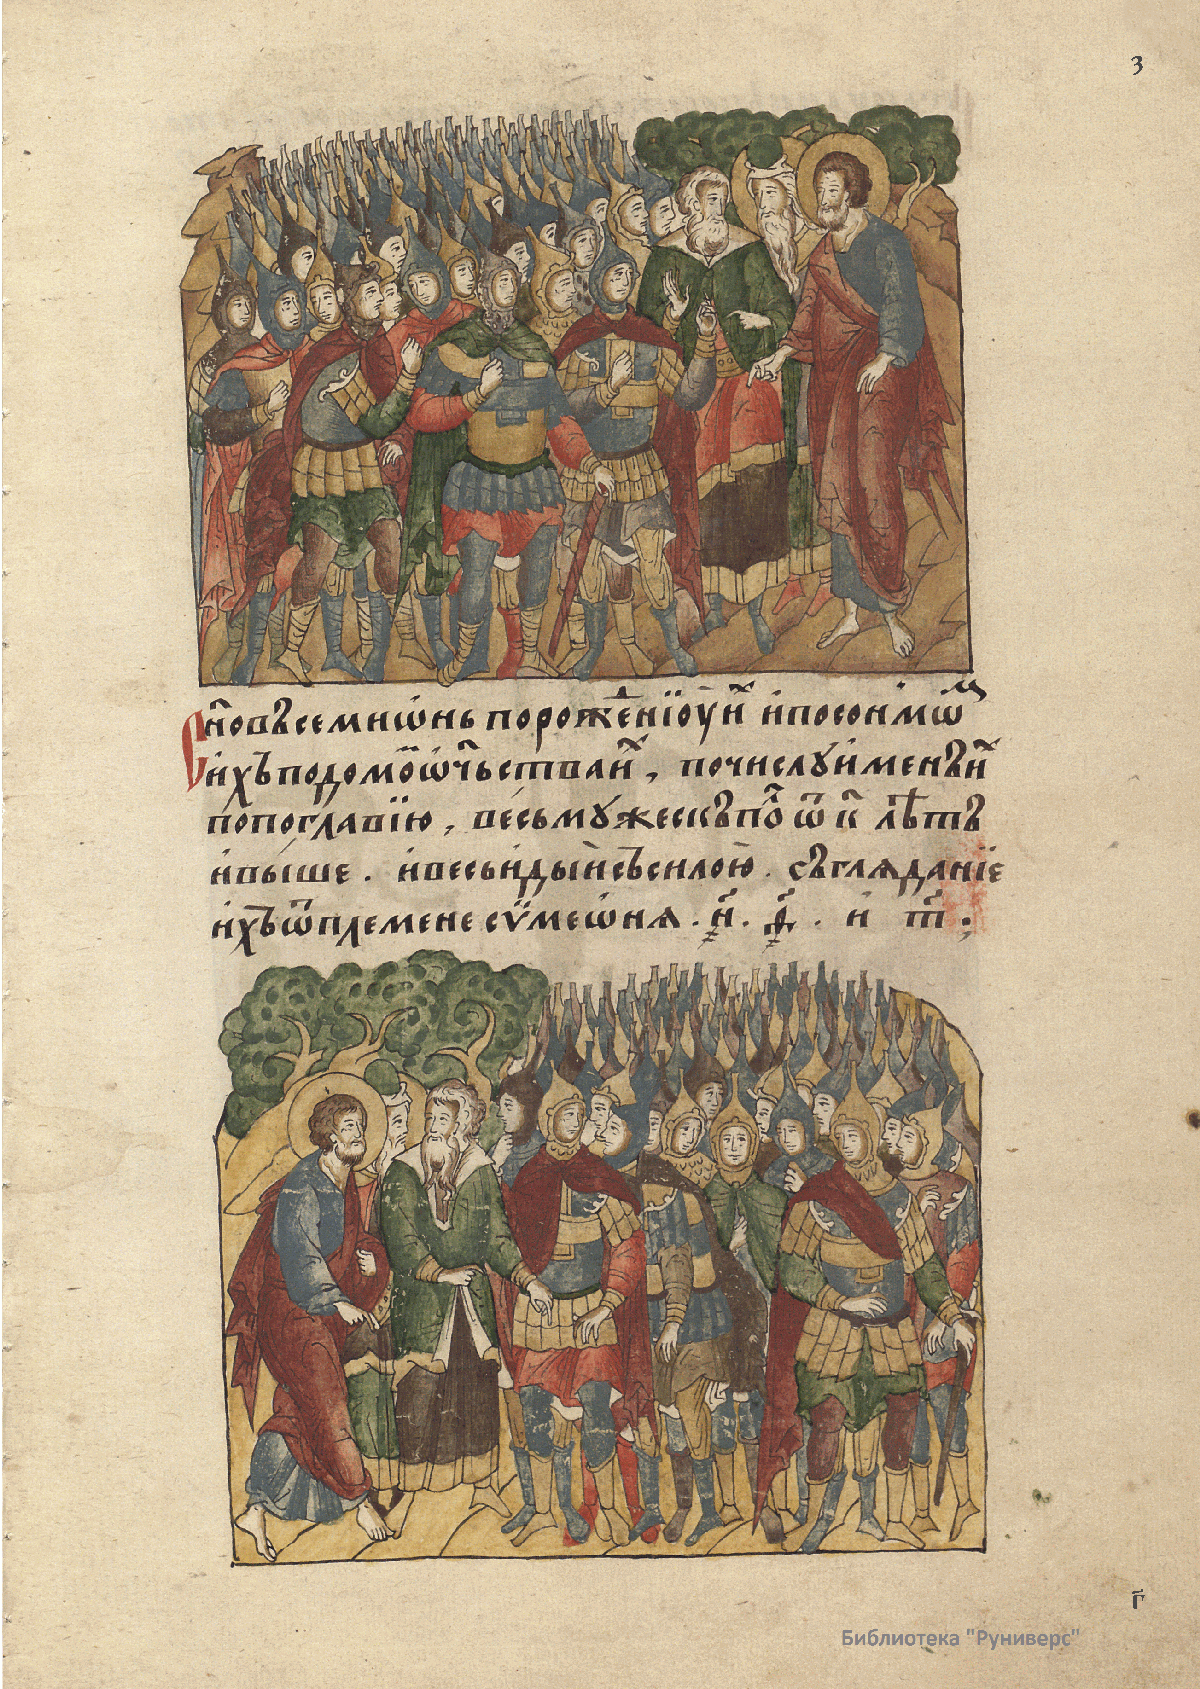 З
Сн҃овъ семиѡнь по рожⷣенїоу иⷯ и по сонмѡⷨ
ихъ по домоⷨ ѿчⷭьства иⷯ, по числꙋ именъ иⷯ
по поглавїю, весь мꙋжескъ поⷧ ѿ к҃ лѣтъ
и выше. и весь идыи съ силою. съгляданїе
ихъ ѿ племене сѷмеѡня. ҂н҃. ҂ѳ҃. и т҃:
г҃
Библиотека "Руниверс"